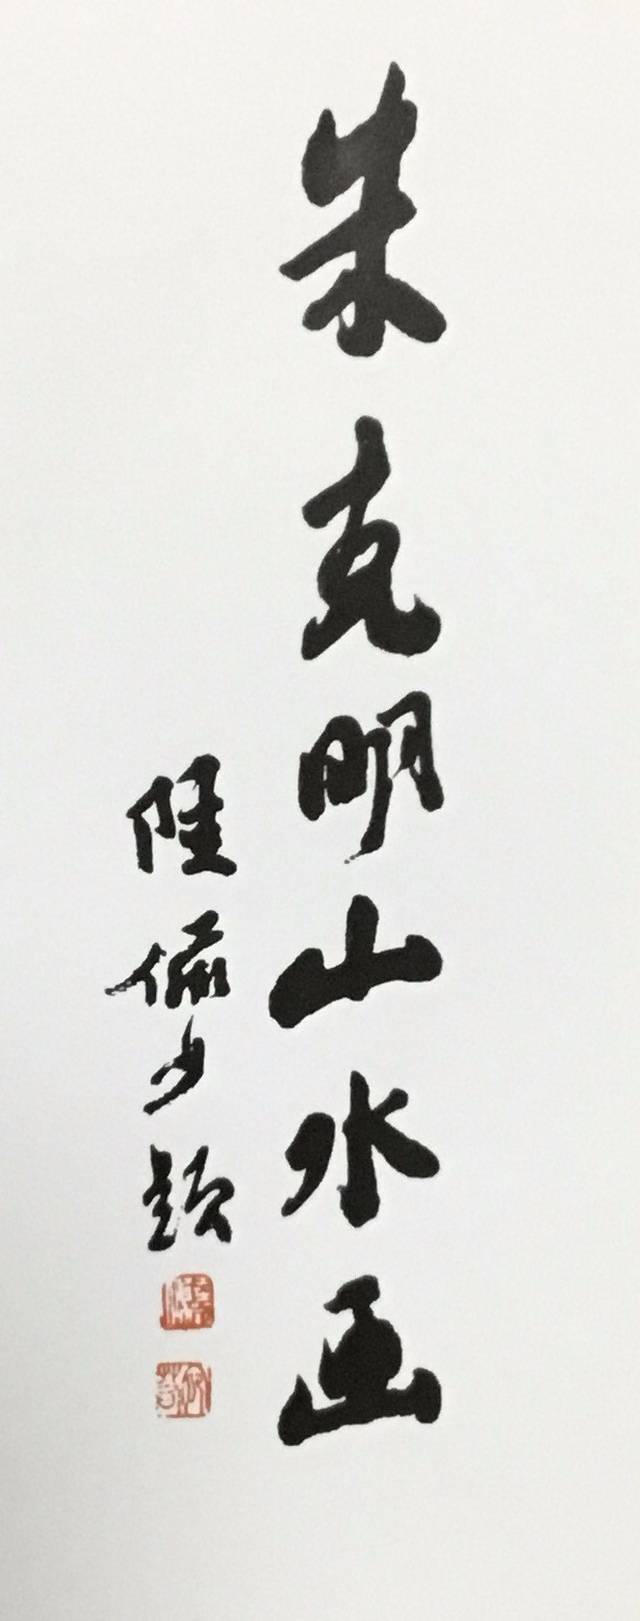 朱克明山水画
陆俨少题